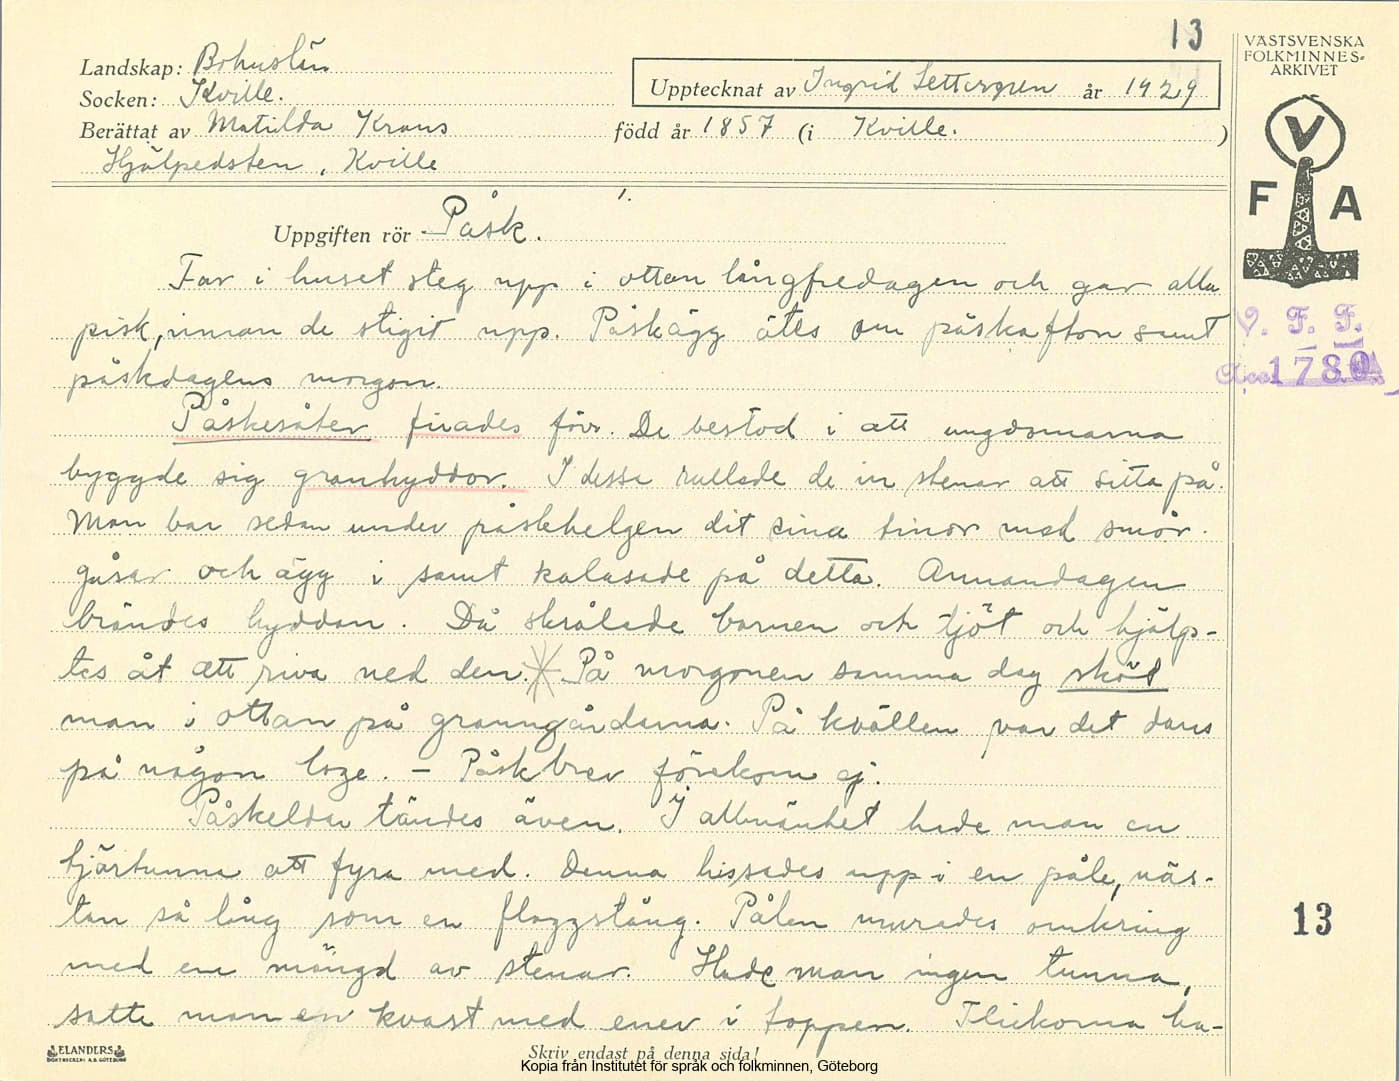 13
Landskap: Bohuslän
Socken: Kville.
Upptecknat av Ingrid Settergren år 1929
Berättat av Matilda Kraus född år 1857 (i Kville.)
Hjälpedsten, Kville
Uppgiften rör Påsk.
Far i huset steg upp i ottan långfredagen och gav alla
pisk, innan de stigit upp. Påskägg ätes om påskafton samt
påskdagens morgon.
Påskesäter firades förr. De bestod i att ungdomarna
byggde sig granhyddor. I dessa rullade de in stenar att sitta på.
Man bar sedan under påskhelgen dit sina tinor med smör-
gåsar och ägg i samt kalasade på detta. Annandagen
brändes hyddan. Då skrålade barnen och tjöt och hjälp-
tes åt att riva ned den. På morgonen samma dag sköt
man i ottan på granngårdarna. På kvällen var det dans
på någon loge. – Påskbrev förekom ej.
Påskeldar tändes även. I allmänhet hade man en
tjärtunna att fyra med. Denna hissades upp i en påle, näs-
tan så lång som en flaggstång. Pålen murades omkring
med en mängd av stenar. Hade man ingen tunna,
satte man en kvast med enev i toppen. Flickorna ha-
ELANDERS
BOKTRYCKERI A.B. GÖTEBORG
Skriv endast på denna sida!
VÄSTSVENSKA
FOLKMINNES-
ARKIVET
V
F A
V. F. F.
Acc. 1780
13
Kopia från Institutet för språk och folkminnen, Göteborg